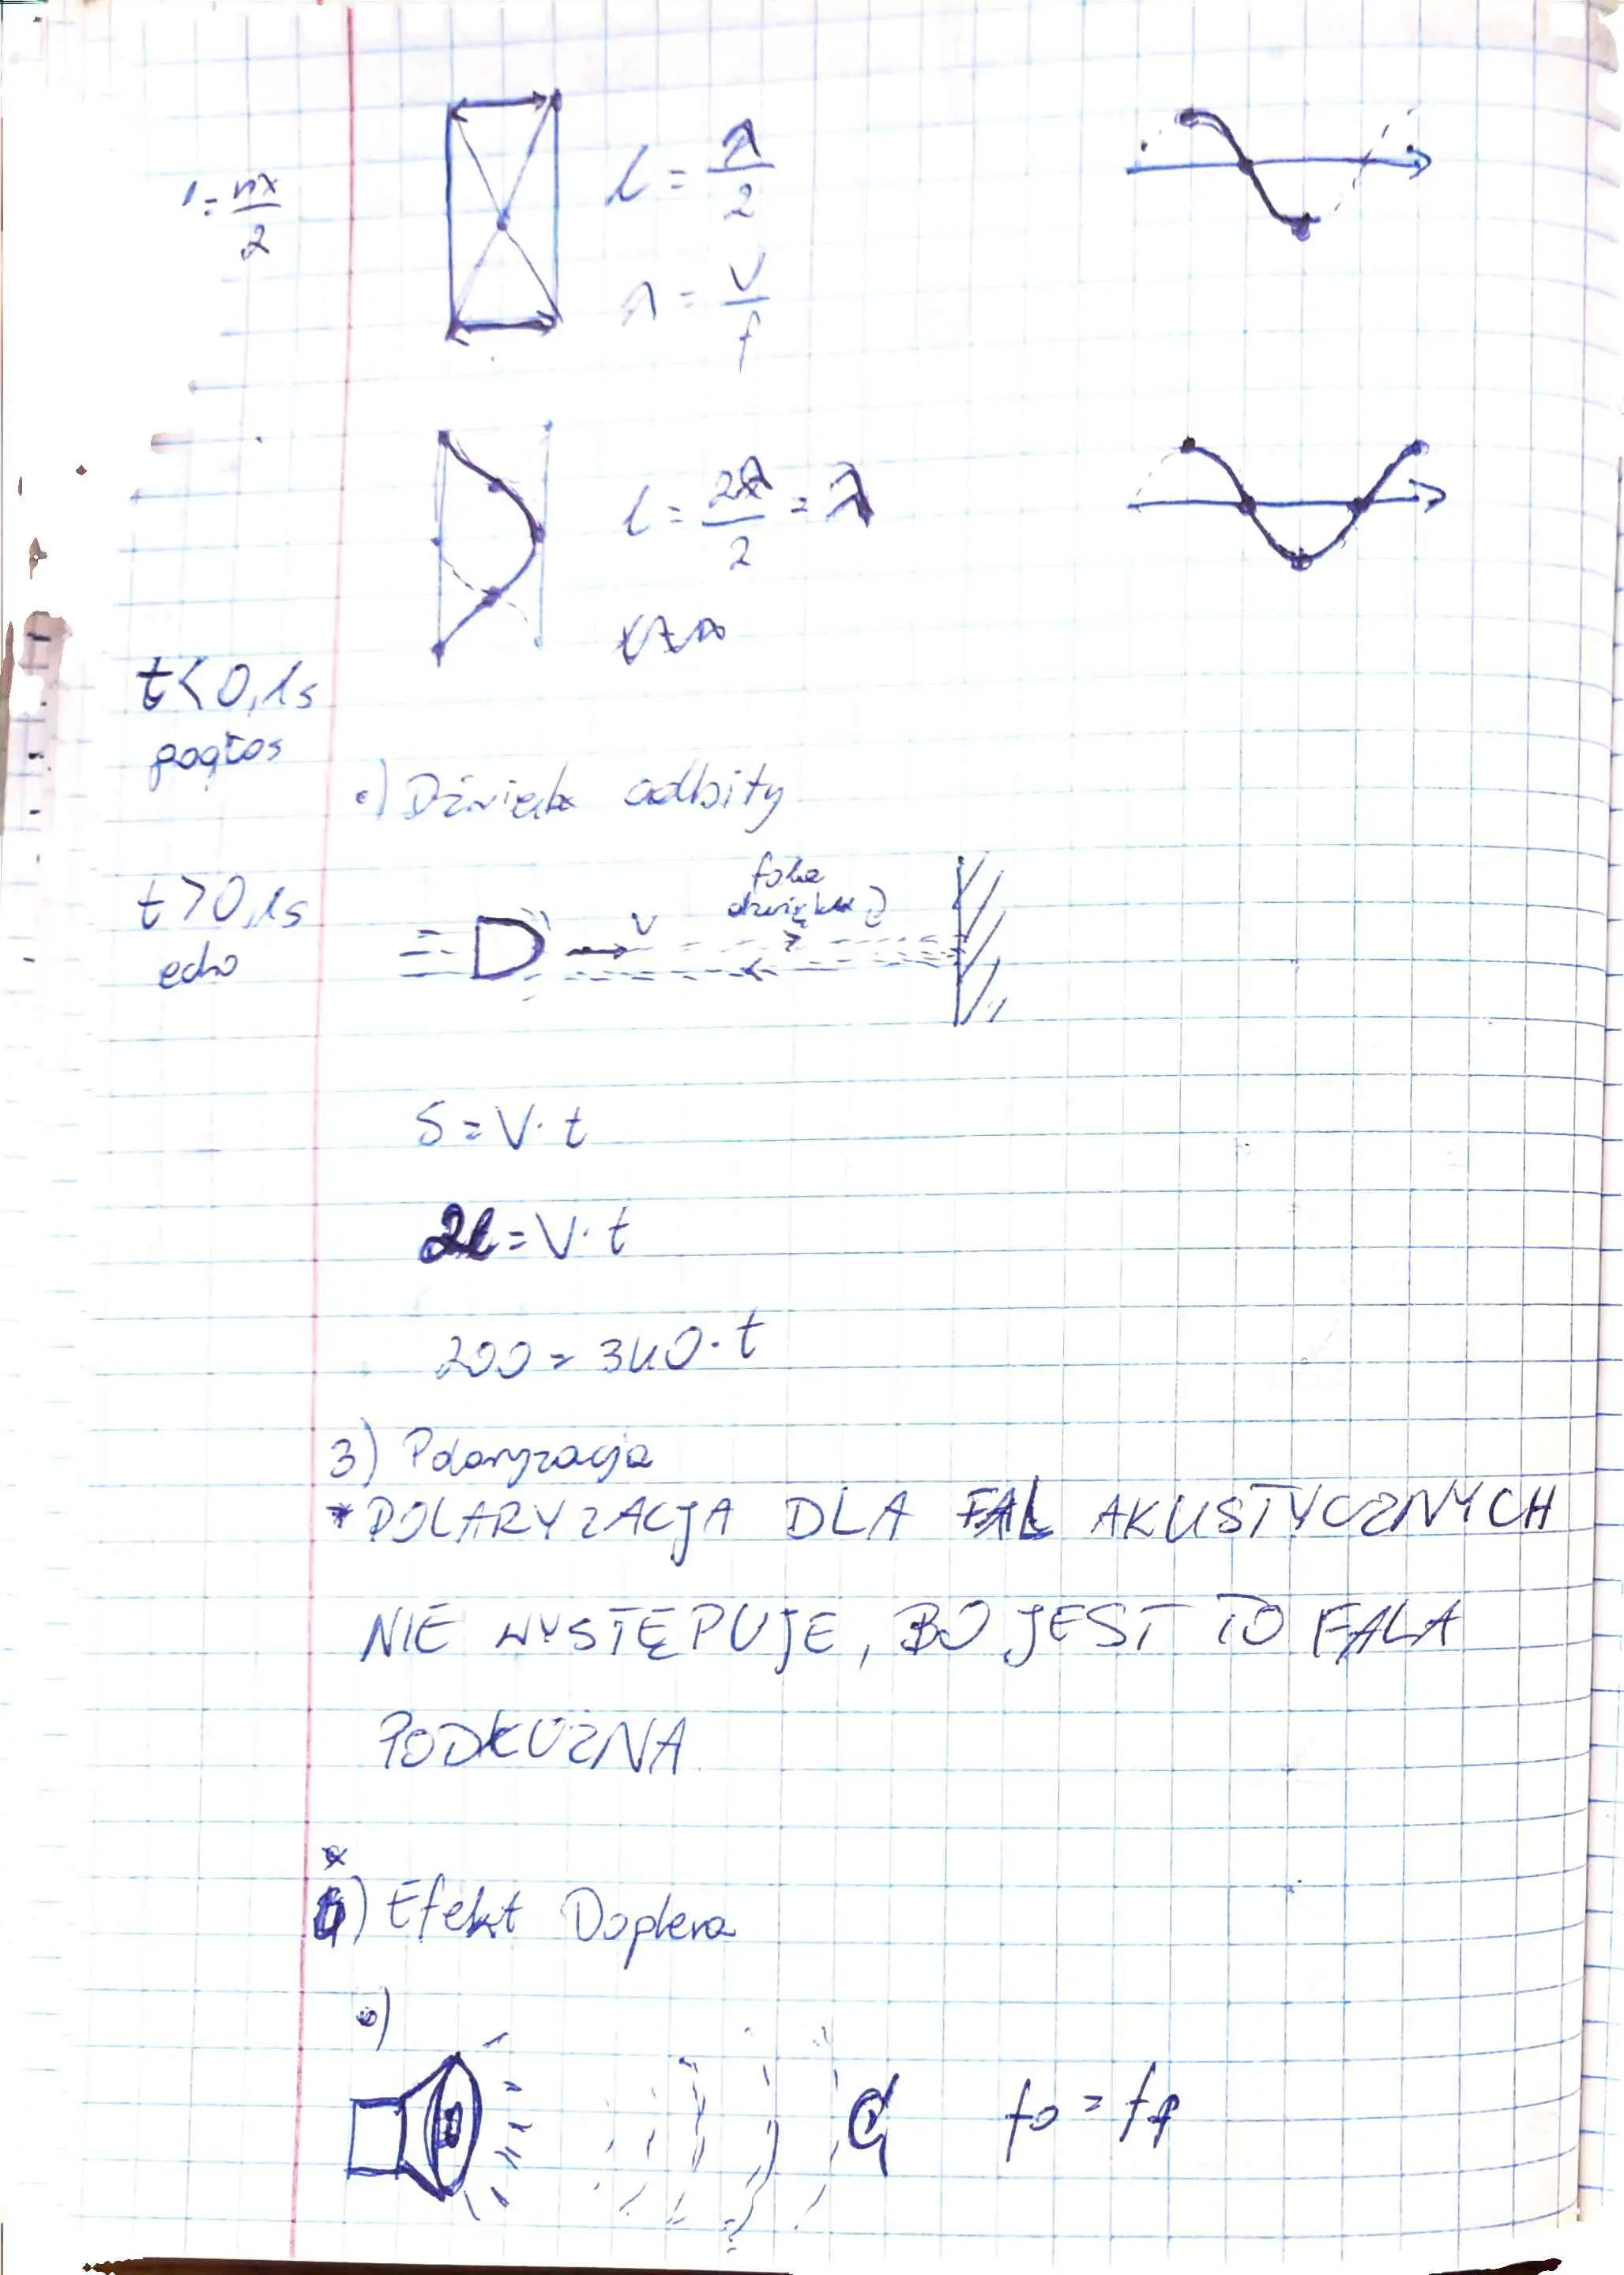 l = λ/2
l = nλ/2
λ = V/f
l = 2λ/2 = λ
t < 0,1s
pogłos
•) Dźwięk odbity
fala
dźwiękowa
t > 0,1s
V
echo
S = V · t
2l = V · t
200 = 340 · t
3) Polaryzacja
* POLARYZACJA DLA FAL AKUSTYCZNYCH
NIE WYSTĘPUJE, BO JEST TO FALA
PODŁUŻNA
4) Efekt Doplera
•)
fo = f